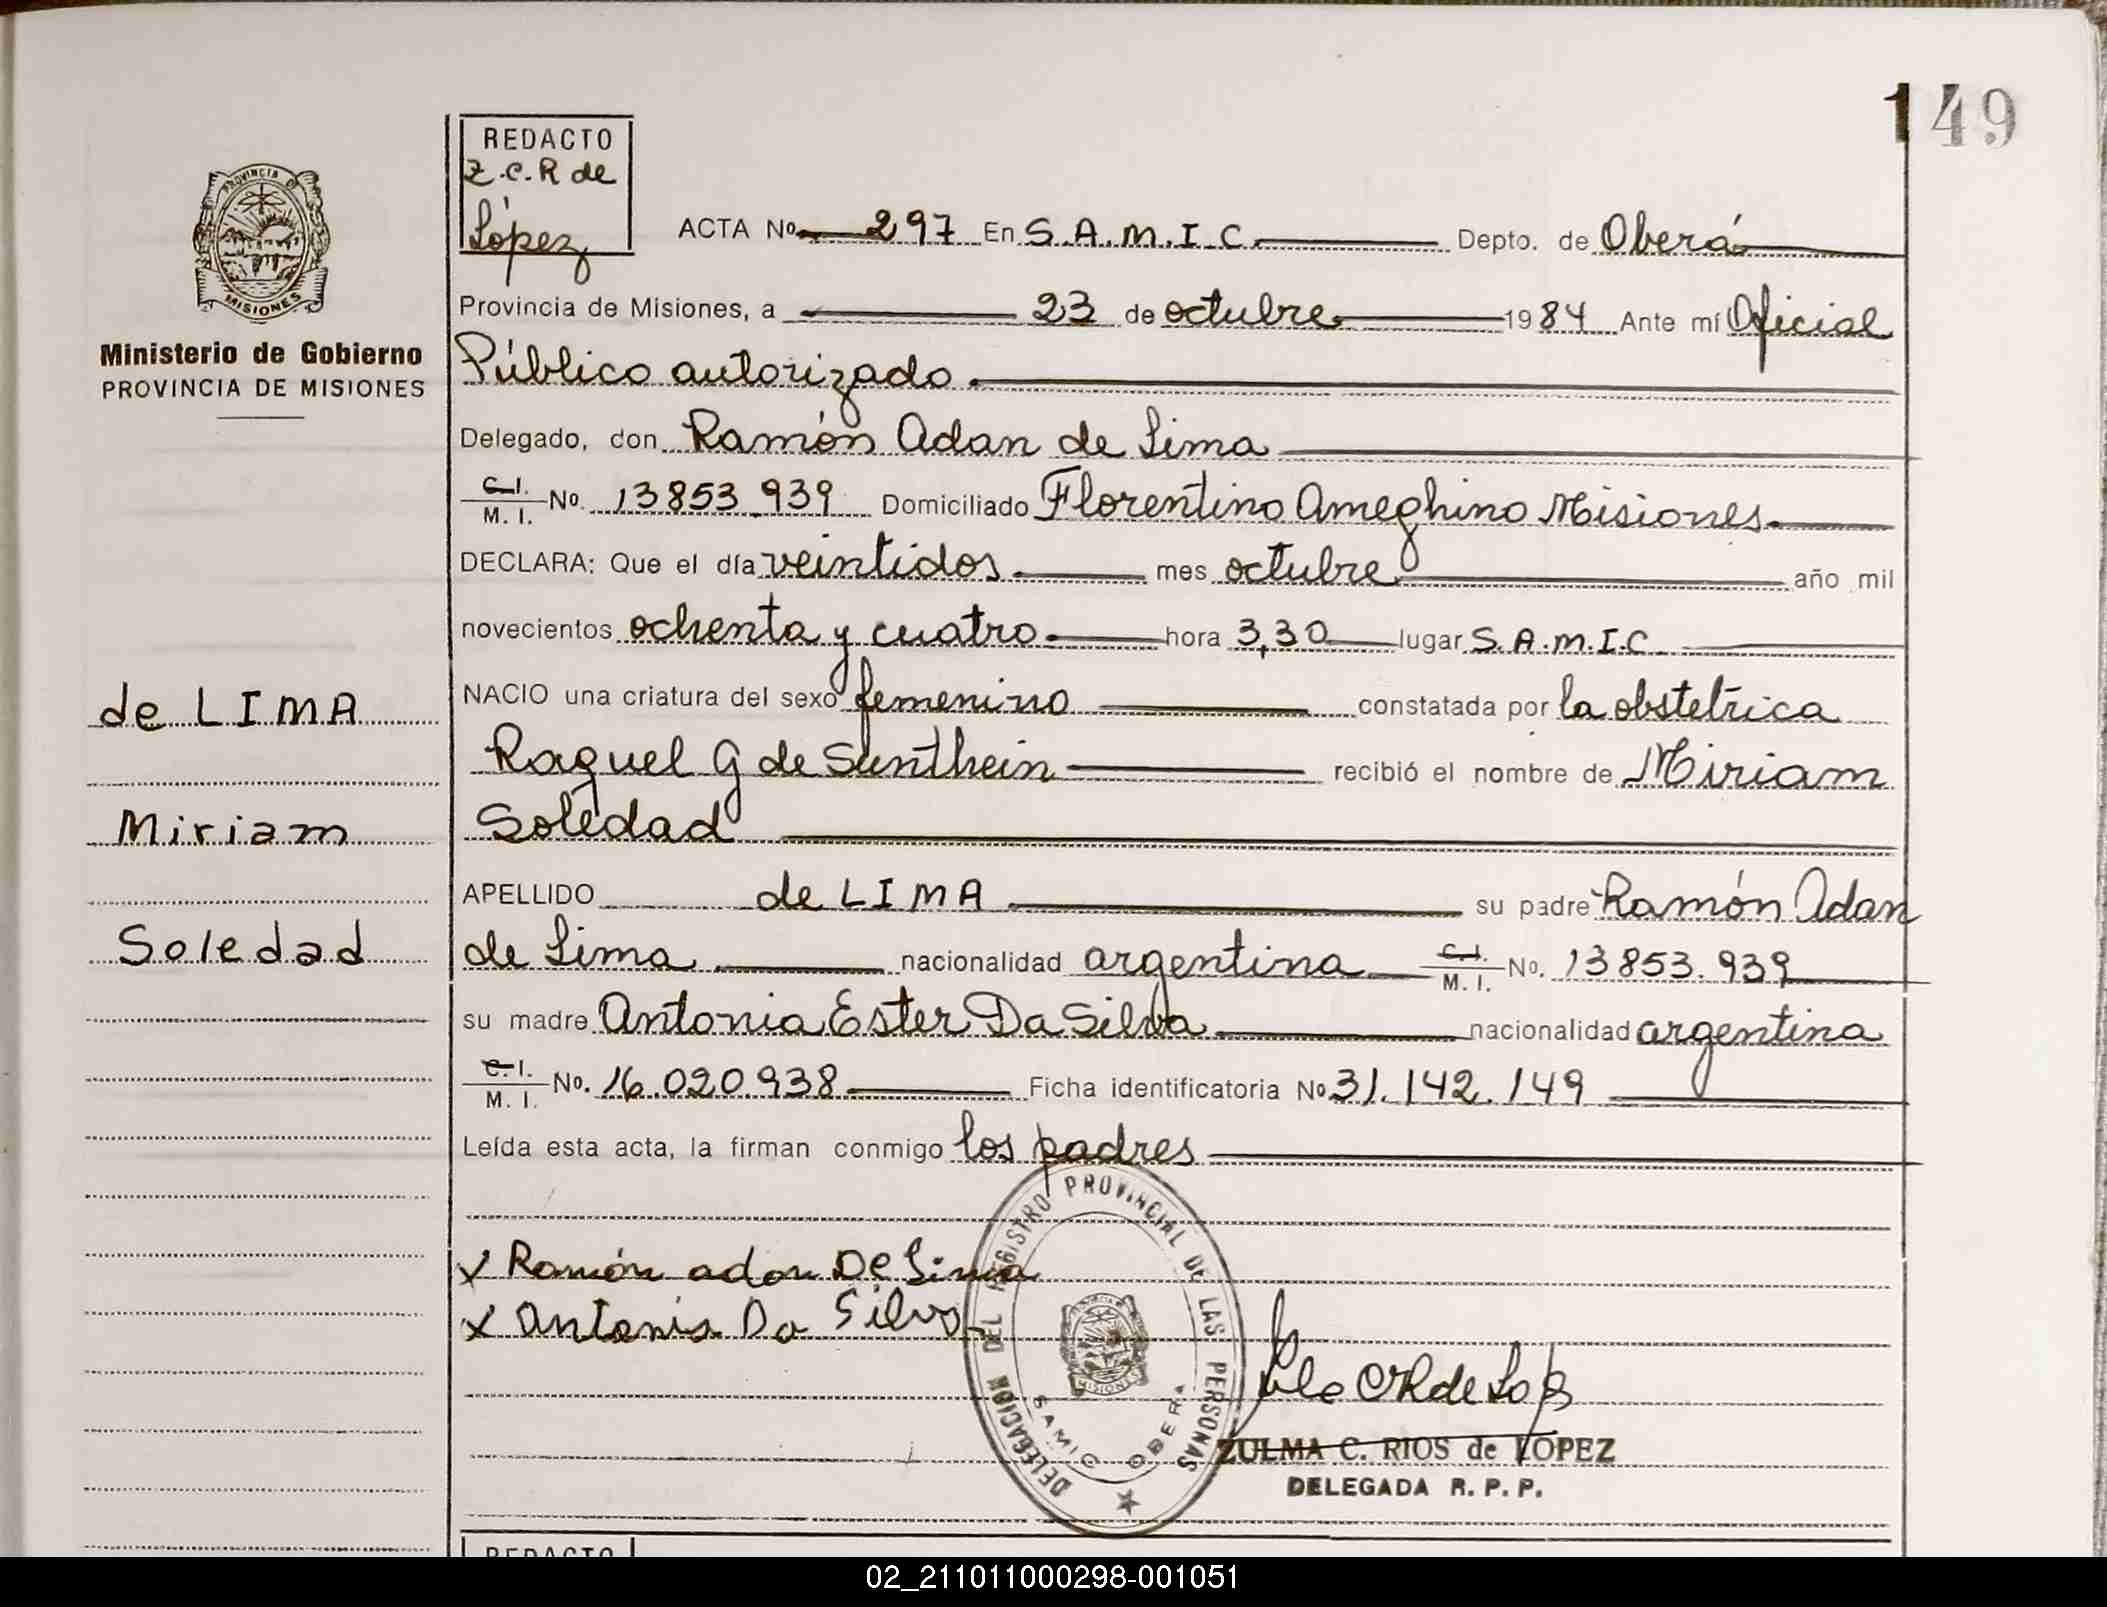 149
REDACTO
Z.C.R de
López
PROVINCIA DE
MISIONES
Ministerio de Gobierno
PROVINCIA DE MISIONES
ACTA Nº 297 En S.A.M.I.C. Depto. de Oberá
Provincia de Misiones, a 23 de octubre 1984 Ante mí Oficial
Público autorizado.
Delegado, don Ramón Adan de Lima
C.I. / M. I. Nº. 13853.939 Domiciliado Florentino Ameghino Misiones.
DECLARA: Que el día veintidos mes octubre año mil
novecientos ochenta y cuatro. hora 3,30 lugar S.A.M.I.C
de LIMA
NACIO una criatura del sexo femenino constatada por la obstetrica
Raquel G de Sunthein recibió el nombre de Miriam
Miriam
Soledad
APELLIDO de LIMA su padre Ramón Adan
Soledad
de Lima nacionalidad argentina C.I. / M. I. Nº. 13853.939
su madre Antonia Ester Da Silva nacionalidad argentina
C.I. / M. I. Nº. 16.020.938 Ficha identificatoria Nº 31.142.149
Leída esta acta, la firman conmigo los padres
x Ramón adan De Lima
x Antonia Da Silva
DELEGACION DEL REGISTRO PROVINCIAL DE LAS PERSONAS
MISIONES
SAMIC OBERA
ZULMA C. RIOS de LOPEZ
DELEGADA R. P. P.
REDACTO
02_211011000298-001051